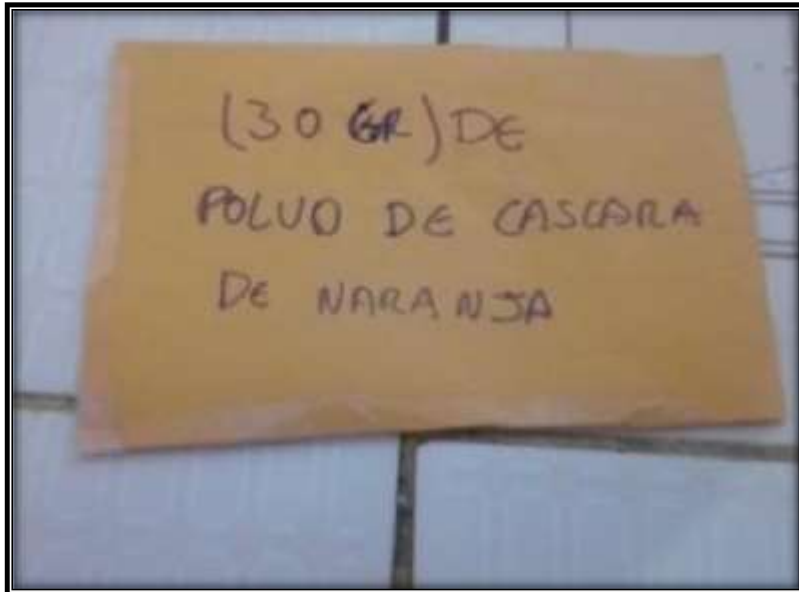 (30 GR) DE
POLVO DE CASCARA
DE NARANJA